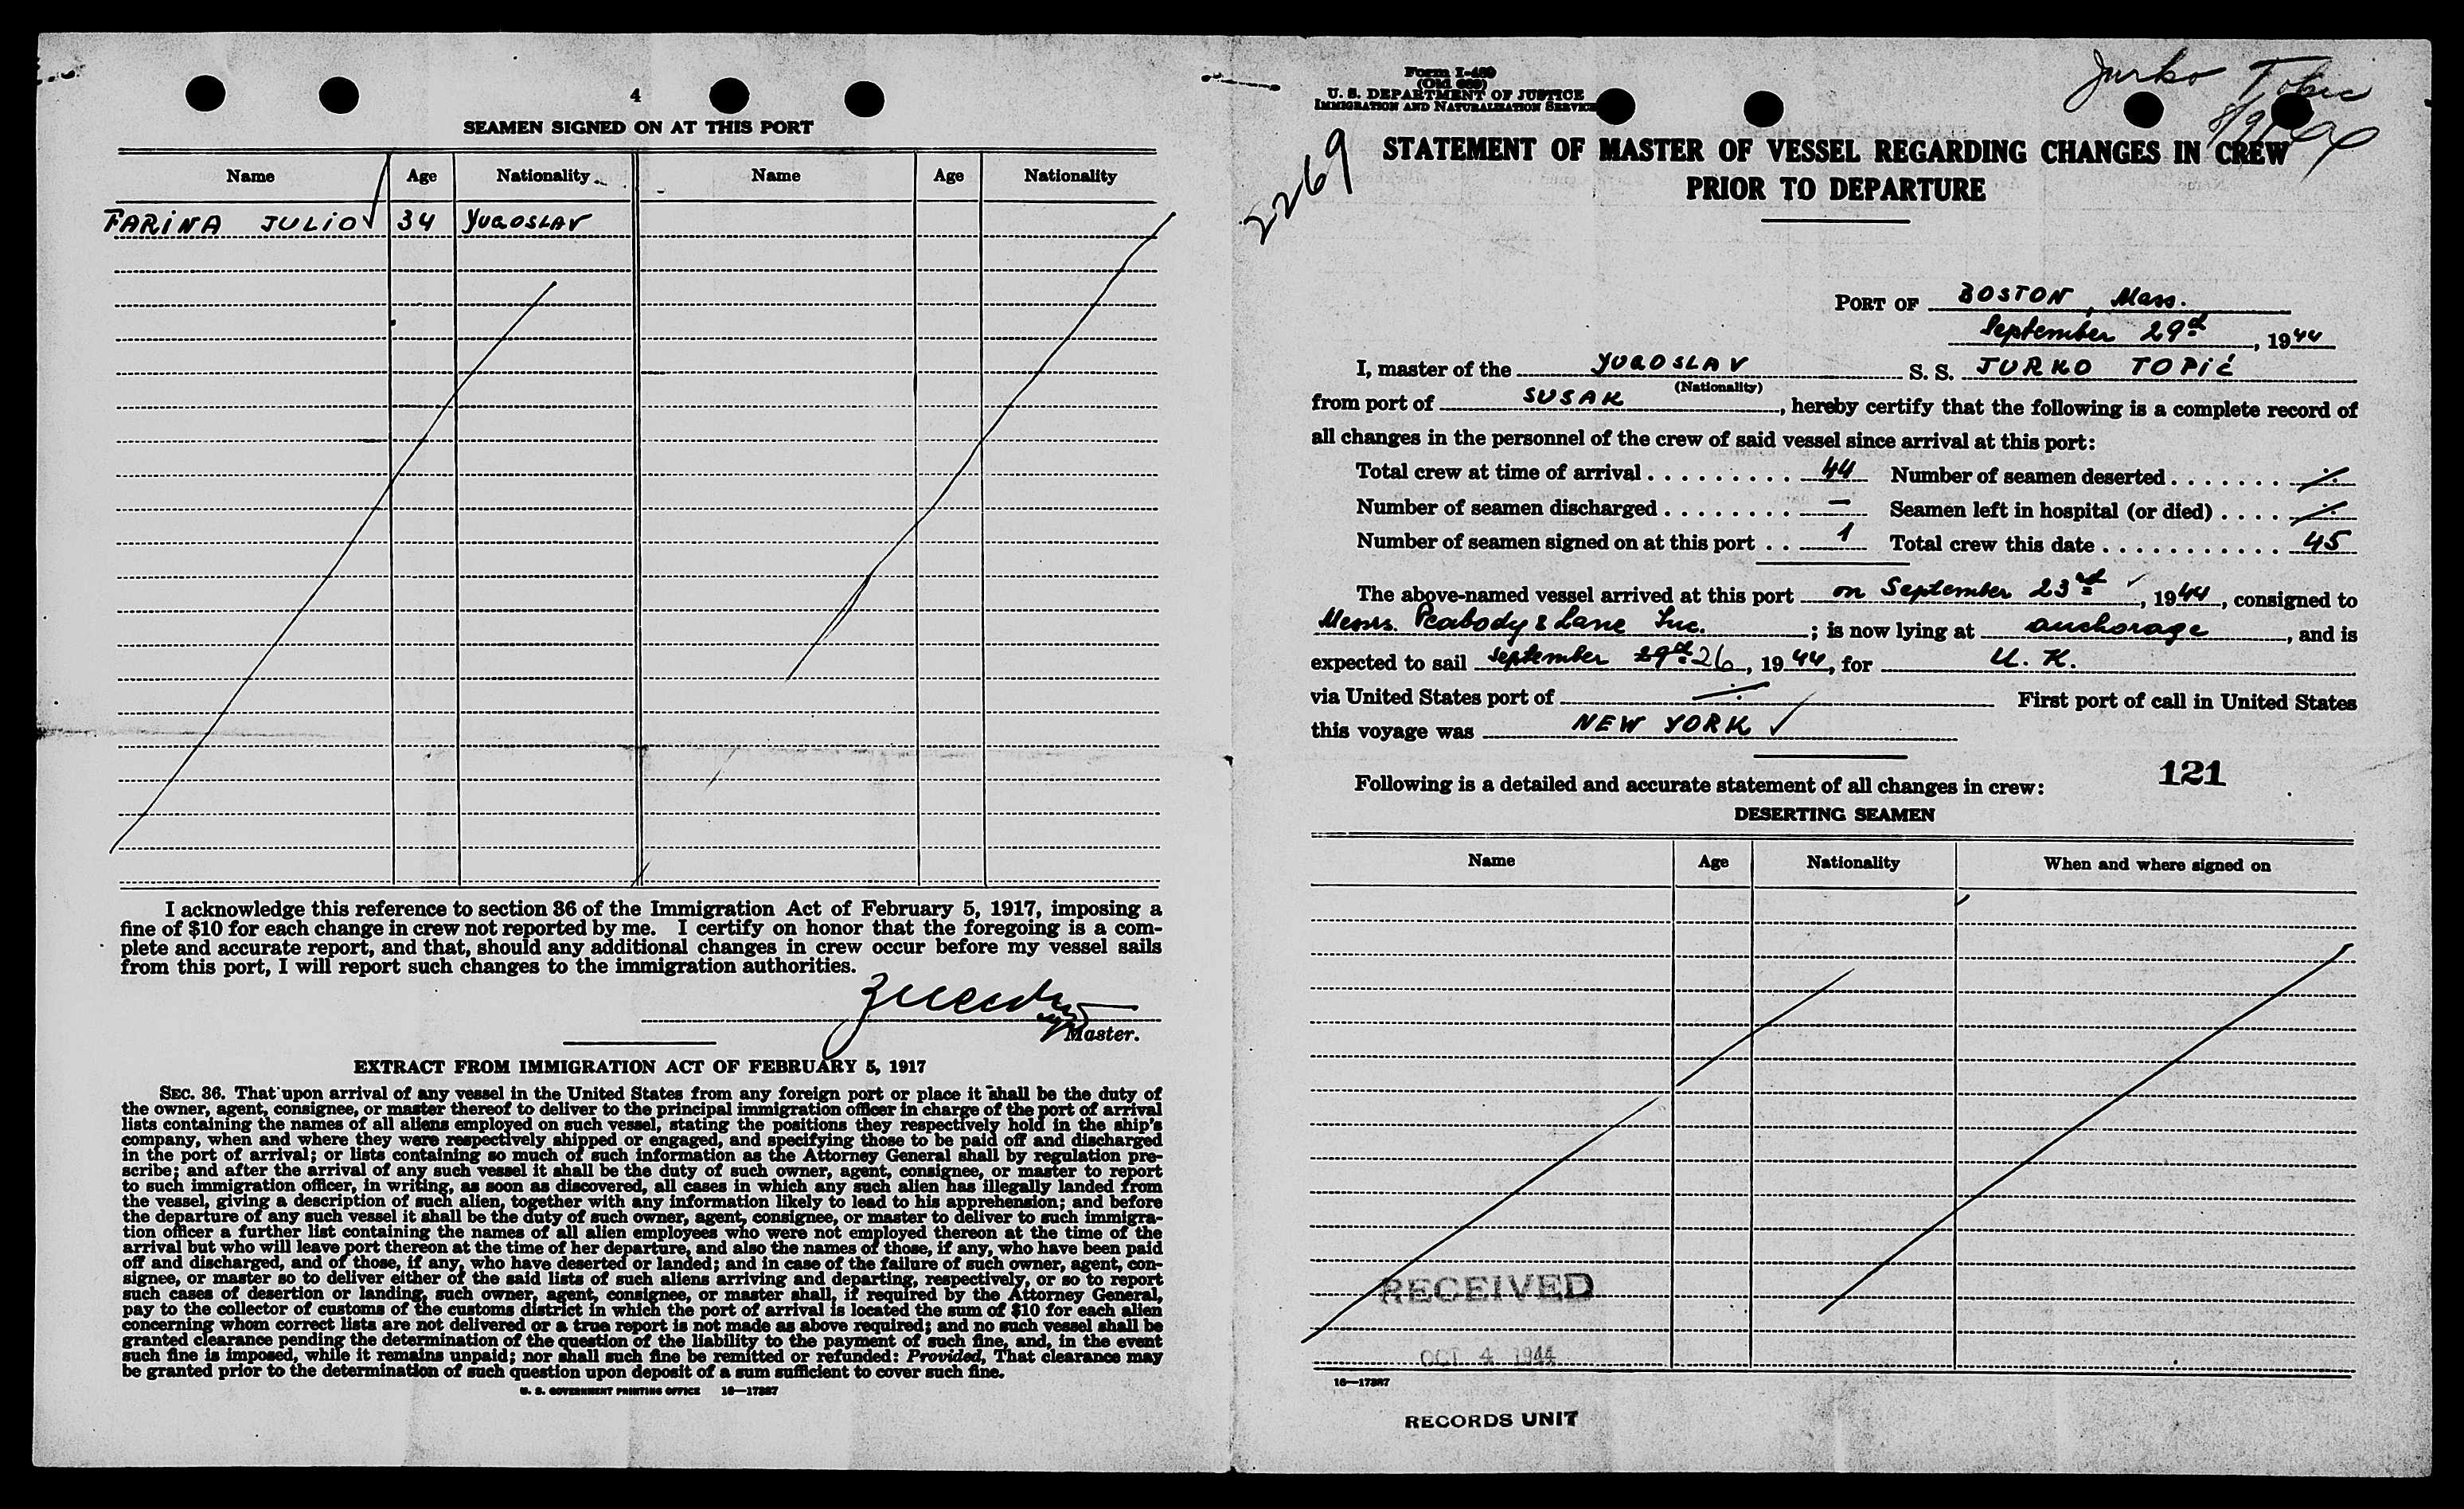 4
SEAMEN SIGNED ON AT THIS PORT
Name Age Nationality Name Age Nationality
FARINA JULIO 34 YUGOSLAV
I acknowledge this reference to section 36 of the Immigration Act of February 5, 1917, imposing a
fine of $10 for each change in crew not reported by me. I certify on honor that the foregoing is a com-
plete and accurate report, and that, should any additional changes in crew occur before my vessel sails
from this port, I will report such changes to the immigration authorities.
Master.
EXTRACT FROM IMMIGRATION ACT OF FEBRUARY 5, 1917
SEC. 36. That upon arrival of any vessel in the United States from any foreign port or place it shall be the duty of
the owner, agent, consignee, or master thereof to deliver to the principal immigration officer in charge of the port of arrival
lists containing the names of all aliens employed on such vessel, stating the positions they respectively hold in the ship's
company, when and where they were respectively shipped or engaged, and specifying those to be paid off and discharged
in the port of arrival; or lists containing so much of such information as the Attorney General shall by regulation pre-
scribe; and after the arrival of any such vessel it shall be the duty of such owner, agent, consignee, or master to report
to such immigration officer, in writing, as soon as discovered, all cases in which any such alien has illegally landed from
the vessel, giving a description of such alien, together with any information likely to lead to his apprehension; and before
the departure of any such vessel it shall be the duty of such owner, agent, consignee, or master to deliver to such immigra-
tion officer a further list containing the names of all alien employees who were not employed thereon at the time of the
arrival but who will leave port thereon at the time of her departure, and also the names of those, if any, who have been paid
off and discharged, and of those, if any, who have deserted or landed; and in case of the failure of such owner, agent, con-
signee, or master so to deliver either of the said lists of such aliens arriving and departing, respectively, or so to report
such cases of desertion or landing, such owner, agent, consignee, or master shall, if required by the Attorney General,
pay to the collector of customs of the customs district in which the port of arrival is located the sum of $10 for each alien
concerning whom correct lists are not delivered or a true report is not made as above required; and no such vessel shall be
granted clearance pending the determination of the question of the liability to the payment of such fine, and, in the event
such fine is imposed, while it remains unpaid; nor shall such fine be remitted or refunded: Provided, That clearance may
be granted prior to the determination of such question upon deposit of a sum sufficient to cover such fine.
U. S. GOVERNMENT PRINTING OFFICE 16—17387
Form I-489
(Old 689)
U. S. DEPARTMENT OF JUSTICE
IMMIGRATION AND NATURALIZATION SERVICE
Jurko Tobic
2269
STATEMENT OF MASTER OF VESSEL REGARDING CHANGES IN CREW
PRIOR TO DEPARTURE
PORT OF BOSTON, Mass.
September 29d, 1944
I, master of the YUGOSLAV S. S. JURKO TOPIĆ
(Nationality)
from port of SUSAK, hereby certify that the following is a complete record of
all changes in the personnel of the crew of said vessel since arrival at this port:
Total crew at time of arrival . . . . . . . . . 44 Number of seamen deserted . . . . . . .
Number of seamen discharged . . . . . . . . — Seamen left in hospital (or died) . . . .
Number of seamen signed on at this port . . 1 Total crew this date . . . . . . . . . . . 45
The above-named vessel arrived at this port on September 23rd, 1944, consigned to
Messrs. Peabody & Lane Inc.; is now lying at anchorage, and is
expected to sail September 29d 26, 1944, for U. K.
via United States port of First port of call in United States
this voyage was NEW YORK ✓
Following is a detailed and accurate statement of all changes in crew: 121
DESERTING SEAMEN
Name Age Nationality When and where signed on
RECEIVED
OCT 4 1944
16—17387
RECORDS UNIT